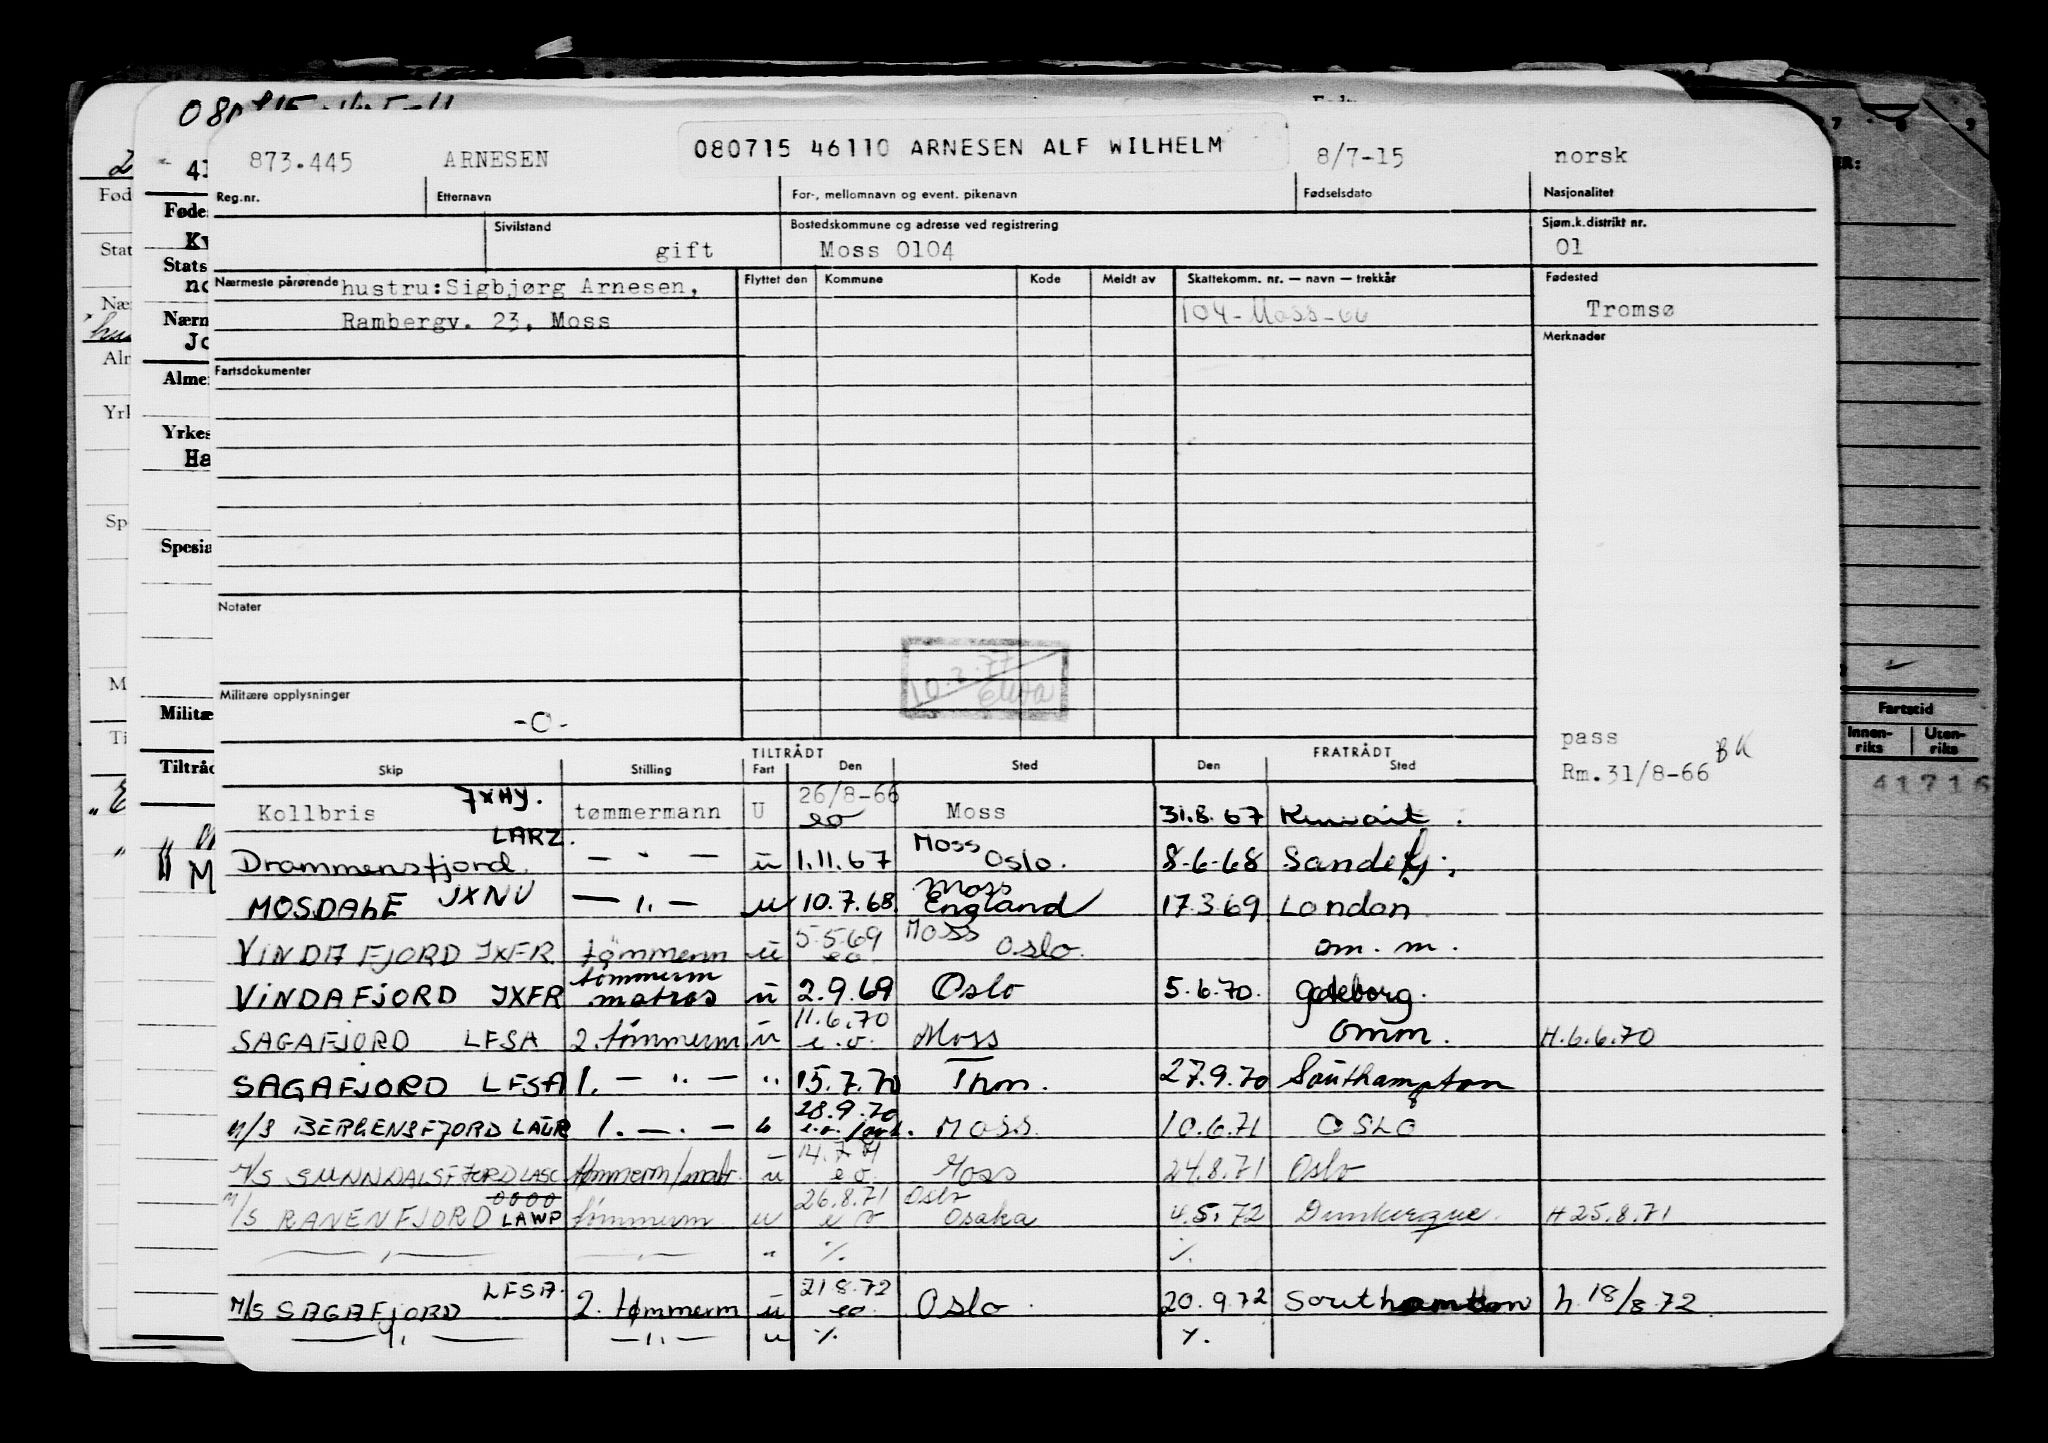 873.445 ARNESEN 080715 46110 ARNESEN ALF WILHELM 8/7-15 norsk
Reg.nr. Etternavn For-, mellomnavn og event. pikenavn Fødselsdato Nasjonalitet
Sivilstand Bostedskommune og adresse ved registrering Sjøm.k.distrikt nr.
gift Moss 0104 01
Nærmeste pårørende hustru:Sigbjørg Arnesen, Flyttet den Kommune Kode Meldt av Skattekomm. nr. — navn — trekkår Fødested
Rambergv. 23, Moss 104-Moss-66 Tromsø
Merknader
Fartsdokumenter
Notater
10.2.77
Militære opplysninger
-O-
TILTRÅDT FRATRÅDT pass BK
Skip Stilling Fart Den Sted Den Sted Rm.31/8-66
Kollbris JXHY. tømmermann U 26/8-66 eo Moss 31.8.67 Kuwait
Drammensfjord LARZ. — " — u 1.11.67 Moss Oslo. 8-6-68 Sandefj.
MOSDALE JXNV — " — u 10.7.68 Moss England 17.3.69 London
VINDAFJORD JXFR tømmerm u 5.5.69 eo Moss Oslo. om. m.
VINDAFJORD JXFR tømmerm matros u 2.9.69 Oslo 5.6.70. Gøteborg.
SAGAFJORD LFSA 2. tømmerm u 11.6.70 e.o. Moss omm. H.6.6.70
SAGAFJORD LFSA 1. — " — " 15.7.70 Thm. 27.9.70 Southampton
M/S BERGENSFJORD 1. — " — 28.9.70 Moss 10.6.71 OSLO
M/S SUNNDALSFJORD LASC tømmerm/matr. u 14.7.71 eo Moss 24.8.71 Oslo
M/S RANENFJORD LAWP tømmerm u 26.8.71 eo Oslo Osaka 4.5.72 Dunkerque. H 25.8.71
— " — — " — " %. %.
M/S SAGAFJORD LFSA. 2. tømmerm u 21.8.72 eo. Oslo. 20.9.72 Southamton h.18/8.72
— " — — " — u %. %.
Fartstid
Innen-riks Uten-riks
41716